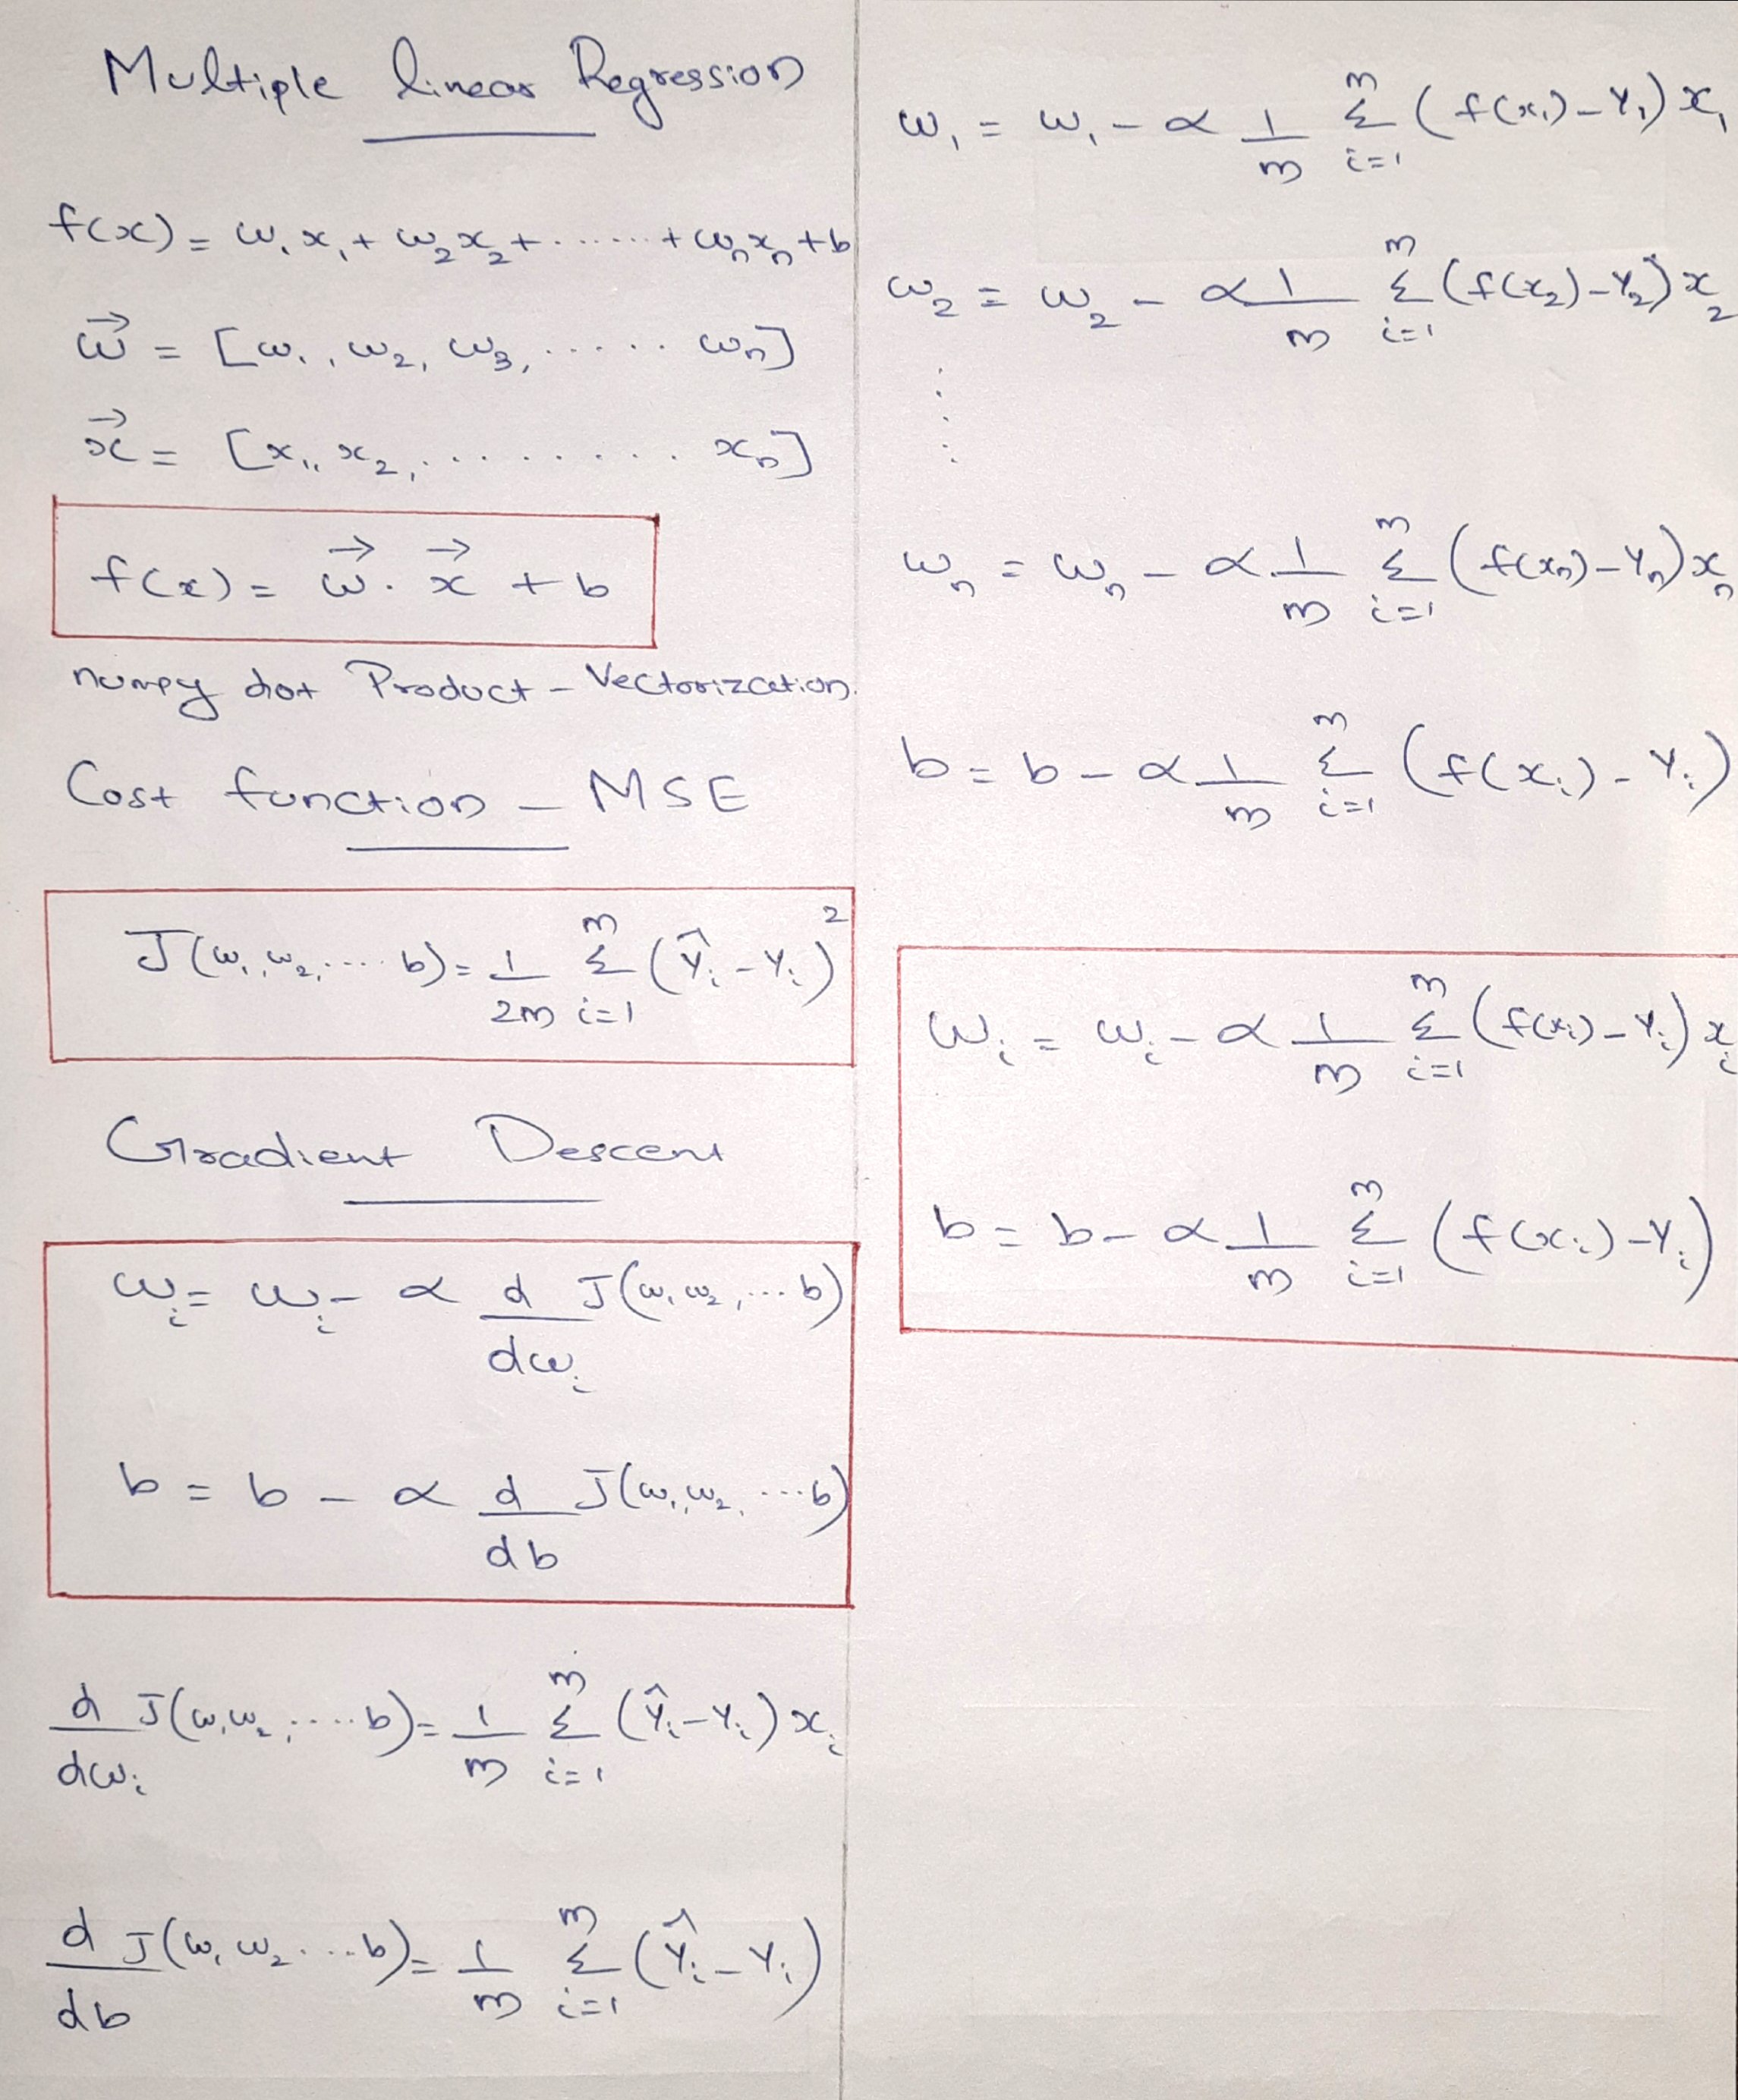 Multiple linear Regression
f(x) = w₁x₁ + w₂x₂ + ....... + wₙxₙ + b
w⃗ = [w₁, w₂, w₃, ...... wₙ]
x⃗ = [x₁, x₂, .......... xₙ]
f(x) = w⃗ . x⃗ + b
numpy dot Product - Vectorization.
Cost function - MSE
J(w₁, w₂, .... b) = 1/2m Σ_{i=1}^{m} (ŷᵢ - yᵢ)²
Gradient Descent
wᵢ = wᵢ - α d/dwᵢ J(w₁, w₂, ... b)
b = b - α d/db J(w₁, w₂, ... b)
d/dwᵢ J(w₁, w₂, .... b) = 1/m Σ_{i=1}^{m} (ŷᵢ - yᵢ) xᵢ
d/db J(w₁ w₂ .... b) = 1/m Σ_{i=1}^{m} (ŷᵢ - yᵢ)
w₁ = w₁ - α 1/m Σ_{i=1}^{m} (f(x₁) - y₁) x₁
w₂ = w₂ - α 1/m Σ_{i=1}^{m} (f(x₂) - y₂) x₂
⋮
wₙ = wₙ - α 1/m Σ_{i=1}^{m} (f(xₙ) - yₙ) xₙ
b = b - α 1/m Σ_{i=1}^{m} (f(xᵢ) - yᵢ)
wᵢ = wᵢ - α 1/m Σ_{i=1}^{m} (f(xᵢ) - yᵢ) xᵢ
b = b - α 1/m Σ_{i=1}^{m} (f(xᵢ) - yᵢ)